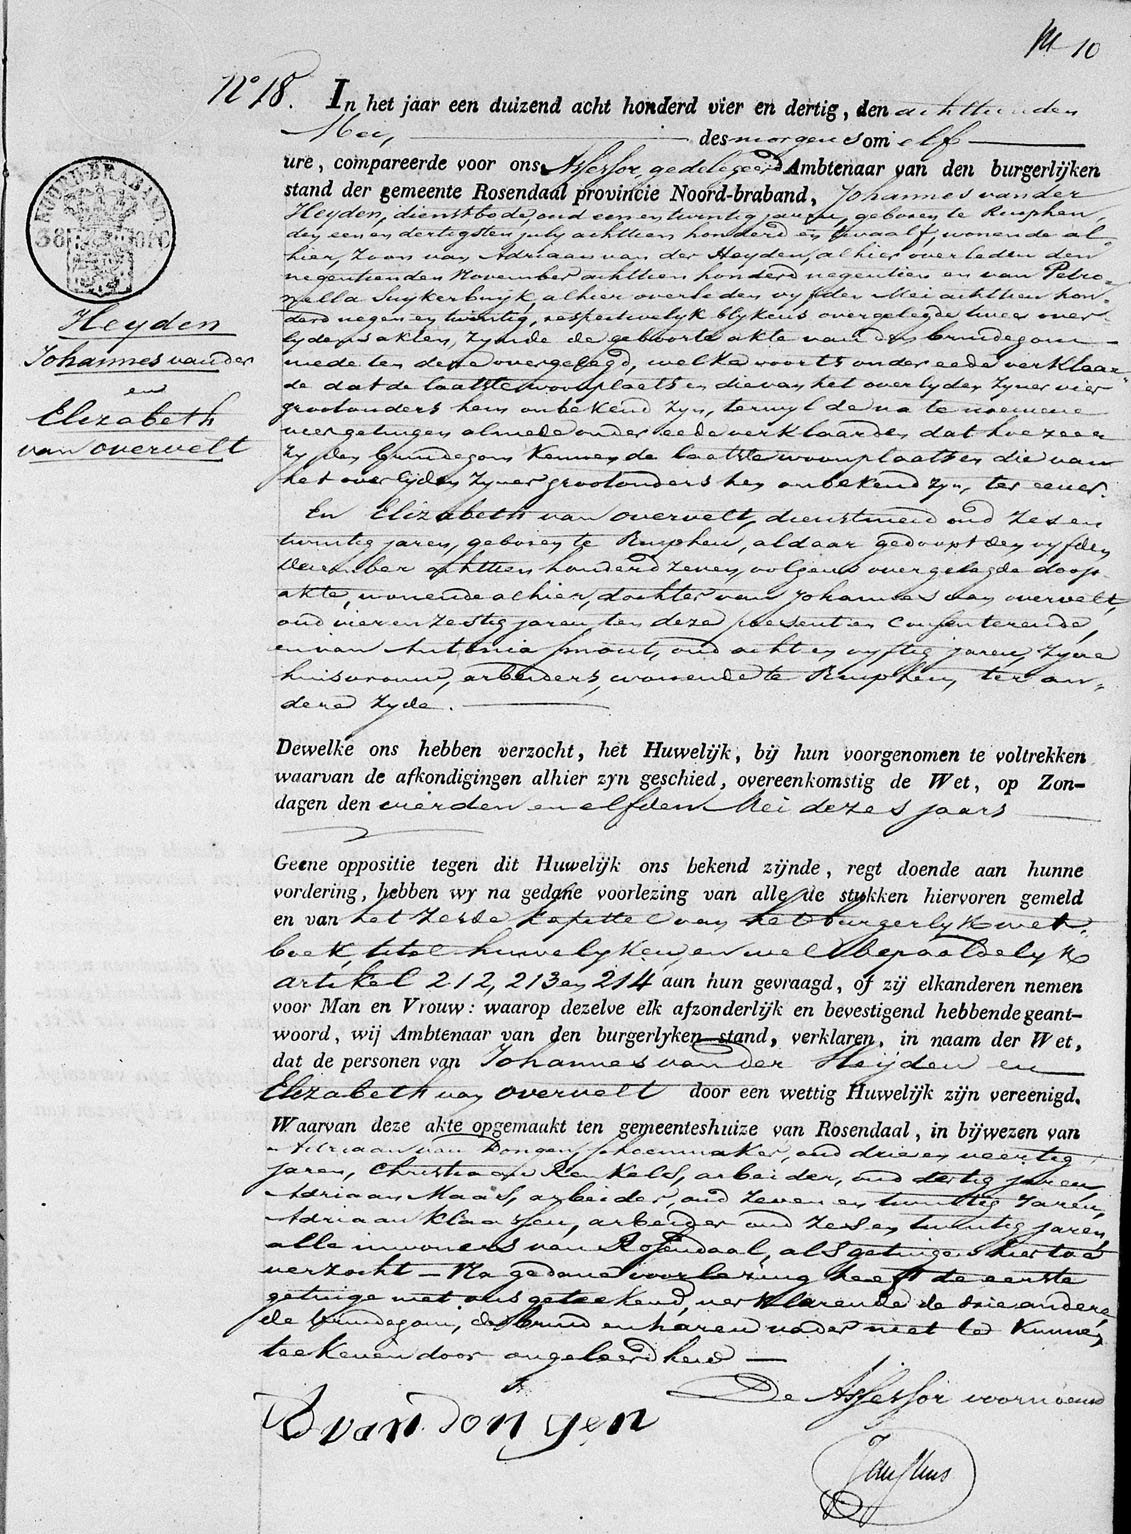 10
N° 18.
In het jaar een duizend acht honderd vier en dertig, den achttienden
Mei, des morgens om elf
ure, compareerde voor ons Assessor gedelegeerd Ambtenaar van den burgerlijken
stand der gemeente Rosendaal provincie Noord-braband, Johannes van der
Heyden, dienstbode, oud een en twintig jaren, geboren te Rucphen,
den een en dertigsten july achttien honderd en twaalf, wonende al
hier, zoon van Adriaan van der Heyden, alhier overleden den
negentienden November achttien honderd negentien en van Petro-
nella Suykerbuyk, alhier overleden vyfden Mei achttien hon-
derd negen en twintig, respectivelyk blykens overgelegde twee over-
lydensakten, zynde de geboorte akte van den bruidegom
mede ten deze overgelegd, welke voorts onder eede verklaar-
de dat de laatste woonplaats en die van het overlyden zyner vier
grootouders hem onbekend zyn, terwyl de na te noemene
vier getuigen almede onder eede verklaarden dat hoezeer
zy den bruidegom kennen de laatste woonplaats en die van
het overlijden zyner grootouders hen onbekend zyn, ter eener.
En Elizabeth van overvelt, dienstmeid oud zes en
twintig jaren, geboren te Rucphen, aldaar gedoopt den vyfden
December achttien honderd zeven, volgens overgelegde doop-
akte, wonende alhier, dochter van Johannes van overvelt,
oud vier en zestig jaren ten deze present en consenterende,
en van Antonia Smout, oud acht en vyftig jaren, zyne
huisvrouw, arbeiders, wonende te Rucphen, ter an-
dere zyde.
Dewelke ons hebben verzocht, het Huwelijk, bij hun voorgenomen te voltrekken
waarvan de afkondigingen alhier zyn geschied, overeenkomstig de Wet, op Zon-
dagen den vierden en elfden Mei dezes jaars
Geene oppositie tegen dit Huwelijk ons bekend zijnde, regt doende aan hunne
vordering, hebben wy na gedane voorlezing van alle de stukken hiervoren gemeld
en van het zesde kapittel van het burgerlyk wet-
boek, titel huwelyken, en wel bepaaldelyk
artikel 212, 213 en 214 aan hun gevraagd, of zij elkanderen nemen
voor Man en Vrouw: waarop dezelve elk afzonderlijk en bevestigend hebbende geant-
woord, wij Ambtenaar van den burgerlyken stand, verklaren, in naam der Wet,
dat de personen van Johannes van der Heijden en
Elizabeth van overvelt door een wettig Huwelijk zijn vereenigd.
Waarvan deze akte opgemaakt ten gemeenteshuize van Rosendaal, in bijwezen van
Adriaan van Dongen, schoenmaker, oud drie en veertig
jaren, Christiaan Renkels, arbeider, oud dertig jaren,
Adriaan Maas, arbeider, oud zeven en twintig jaren,
Adriaan Klaassen, arbeider oud zes en twintig jaren,
alle inwoners van Rosendaal, als getuigen hier toe
verzocht – Na gedane voorlezing heeft de eerste
getuige met ons geteekend, verklarende de drie andere,
de bruidegom, de bruid en haren vader niet te kunnen
teekenen door ongeleerdheid —
De Assessor voornoemd
A van Dongen
NOORD-BRABAND
38
Heyden
Johannes van der
en
Elizabeth
van overvelt